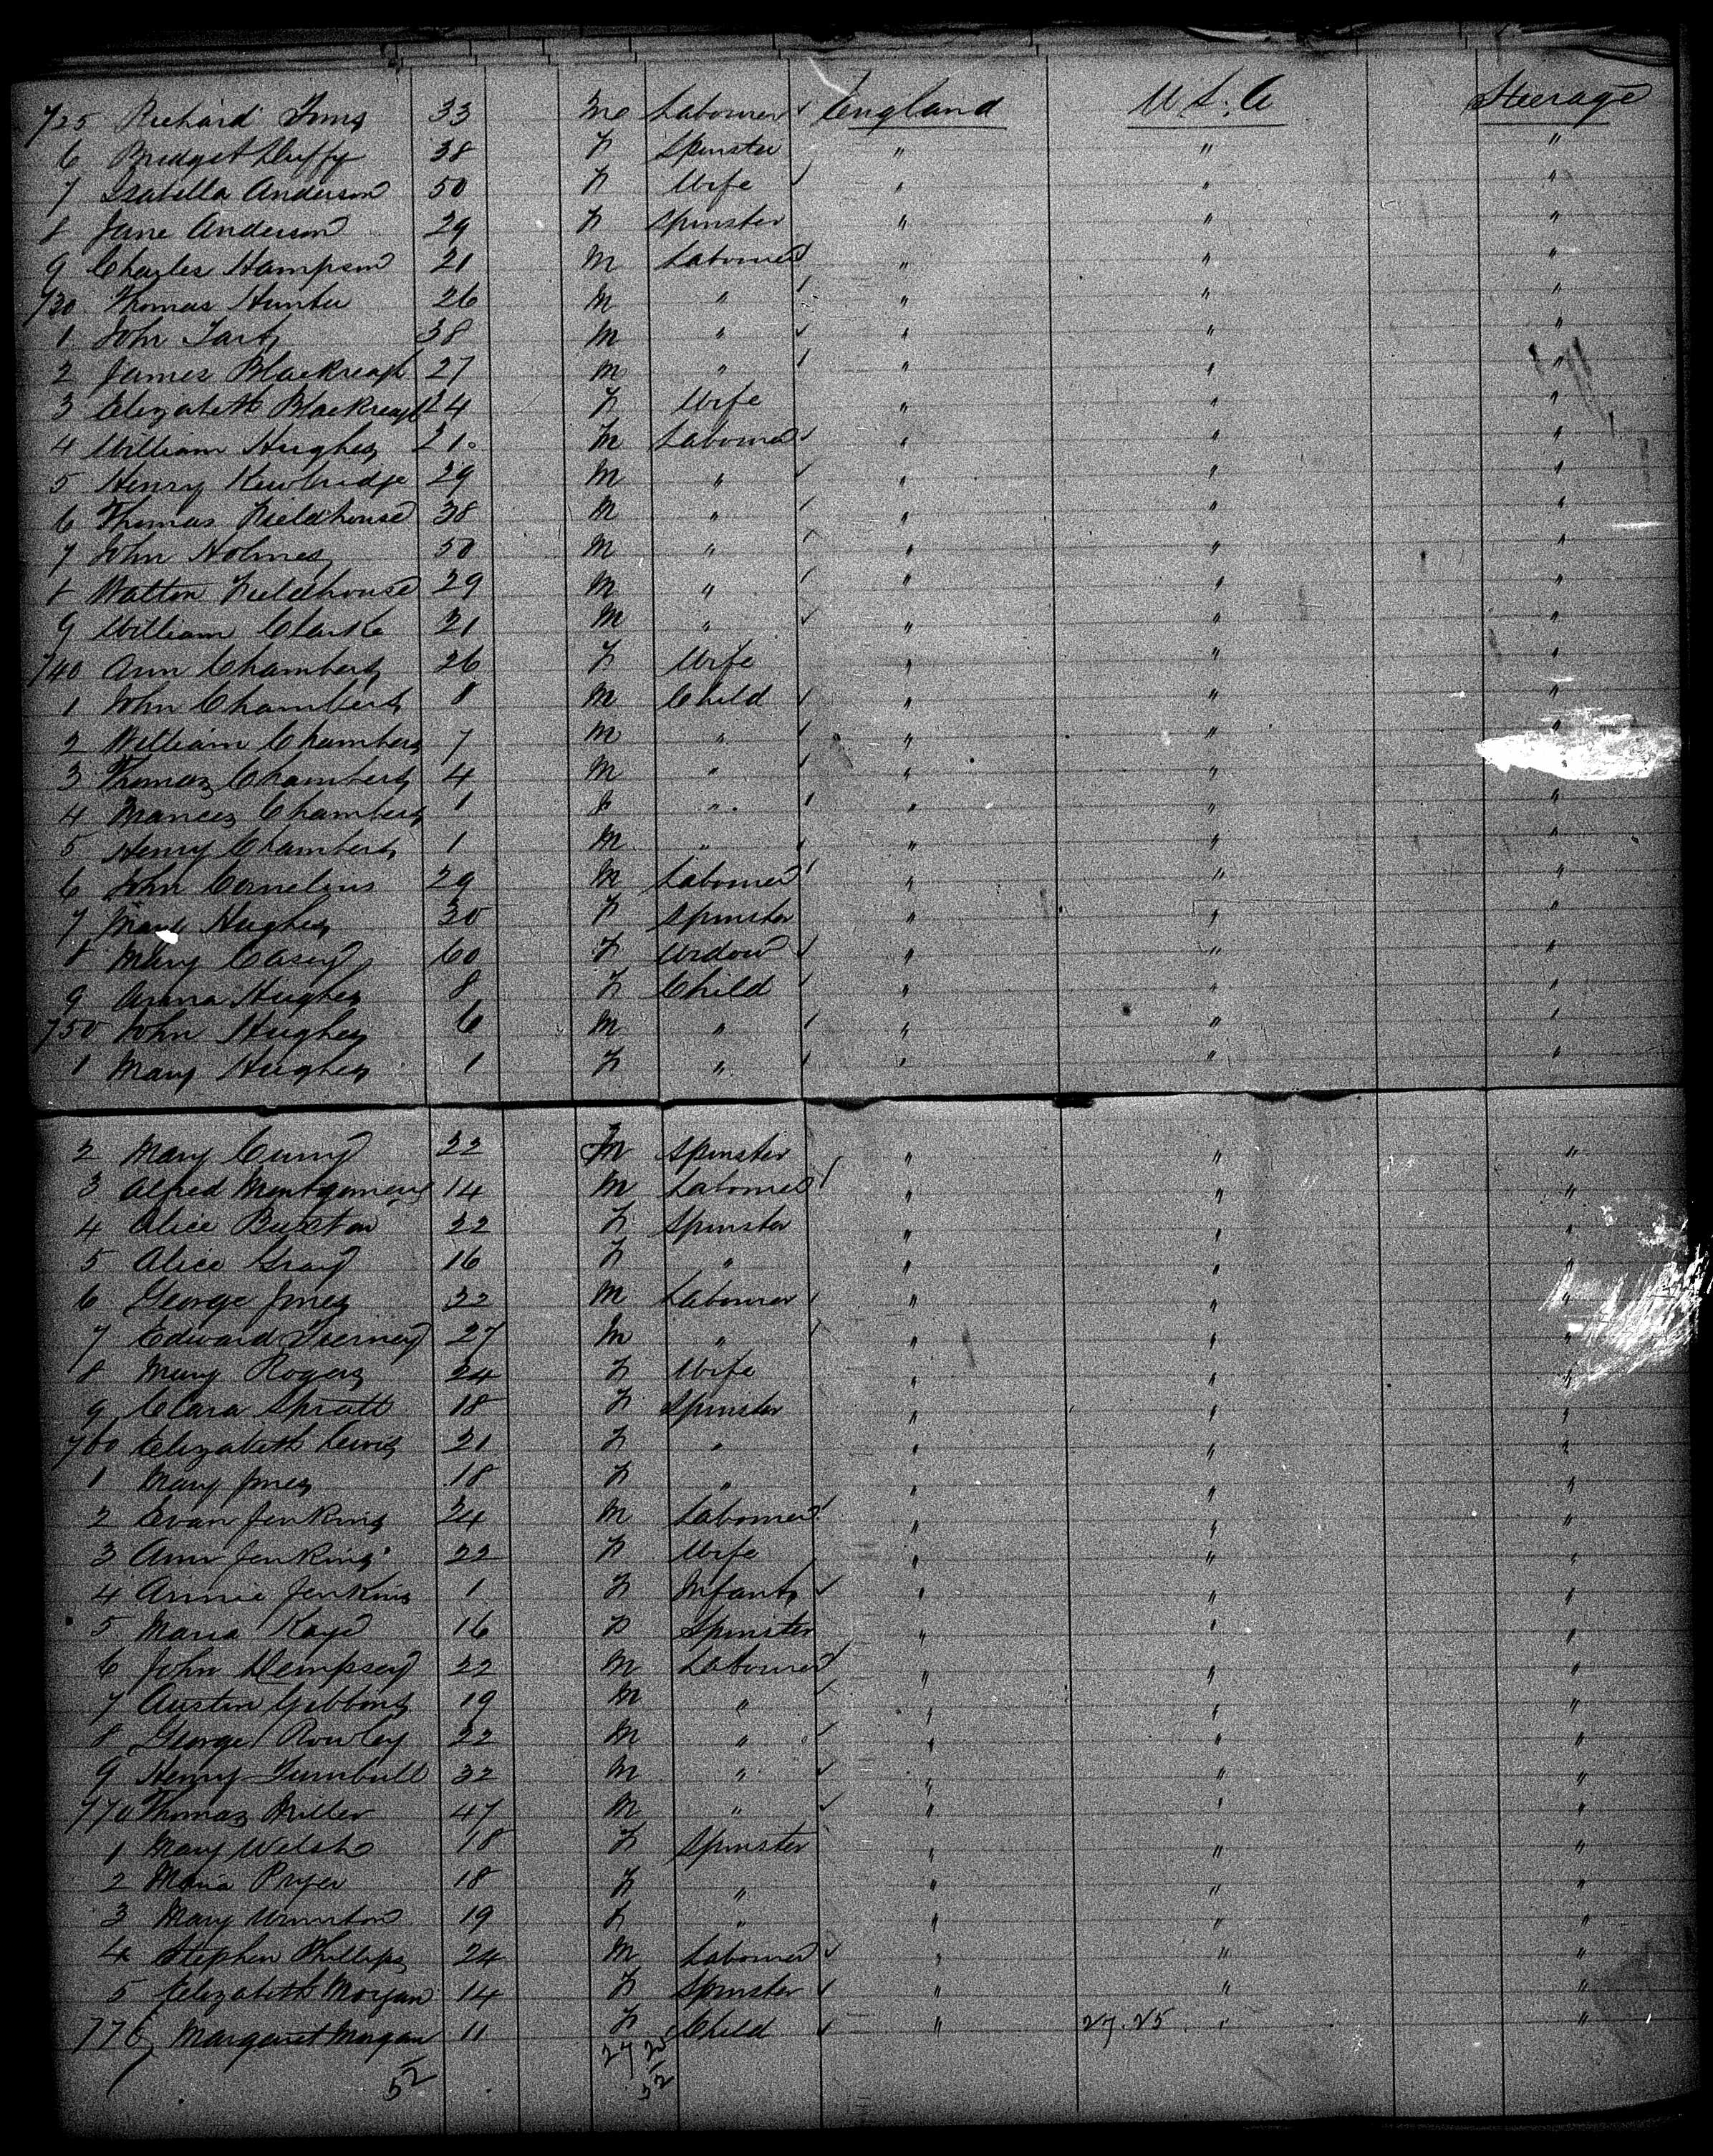 725 Richard Tims 33 M Labourer ✓ England U.S.A Steerage
6 Bridget Duffy 38 F Spinster " " "
7 Isabella Anderson 50 F Wife ✓ " " "
8 Jane Anderson 29 F Spinster " " "
9 Charles Hampson 21 M Labourer ✓ " " "
730 Thomas Hunter 26 M " ✓ " " "
1 John Tart 38 M " ✓ " " "
2 James 27 M " ✓ " " "
3 Elizabeth 24 F Wife " " "
4 William Hughes 21 M Labourer ✓ " " "
5 Henry 29 M " ✓ " " "
6 Thomas Fieldhouse 38 M " ✓ " " "
7 John Holmes 50 M " ✓ " " "
8 Walton Fieldhouse 29 M " ✓ " " "
9 William Clarke 21 M " ✓ " " "
740 Ann Chambers 26 F Wife " " "
1 John Chambers 8 M Child ✓ " " "
2 William Chambers 7 M " ✓ " " "
3 Thomas Chambers 4 M " ✓ " " "
4 Frances Chambers 1 F " ✓ " " "
5 Henry Chambers 1 M " ✓ " " "
6 John Cornelius 29 M Labourer ✓ " " "
7 Hughes 30 F Spinster " " "
8 Mary Casey 60 F Widow ✓ " " "
9 Anna Hughes 8 F Child ✓ " " "
750 John Hughes 6 M " ✓ " " "
1 Mary Hughes 1 F " ✓ " " "
2 Mary Curry 22 F Spinster " " "
3 Alfred Montgomery 14 M Labourer ✓ " " "
4 Alice Buxton 22 F Spinster " " "
5 Alice Gray 16 F " " " "
6 George Jones 32 M Labourer ✓ " " "
7 Edward Tierney 27 M " ✓ " " "
8 Mary Rogers 24 F Wife " " "
9 Clara Spratt 18 F Spinster " " "
760 Elizabeth Lewis 21 F " " " "
1 Mary Jones 18 F " " " "
2 Evan Jenkins 24 M Labourer ✓ " " "
3 Ann Jenkins 22 F Wife " " "
4 Annie Jenkins 1 F Infant ✓ " " "
5 Maria Kaye 16 F Spinster " " "
6 John Dempsey 22 M Labourer ✓ " " "
7 Austin Gibbons 19 M " ✓ " " "
8 George Rowley 22 M " ✓ " " "
9 Henry Turnbull 32 M " ✓ " " "
770 Thomas Miller 47 M " ✓ " " "
1 Mary Welsh 18 F Spinster " " "
2 Maria Pryer 18 F " " " "
3 Mary 19 F " " " "
4 Stephen Phillips 24 M Labourer ✓ " " "
5 Elizabeth Morgan 14 F Spinster ✓ " " "
776 Margaret Morgan 11 F Child ✓ " 27.25 " "
52 27 25
52